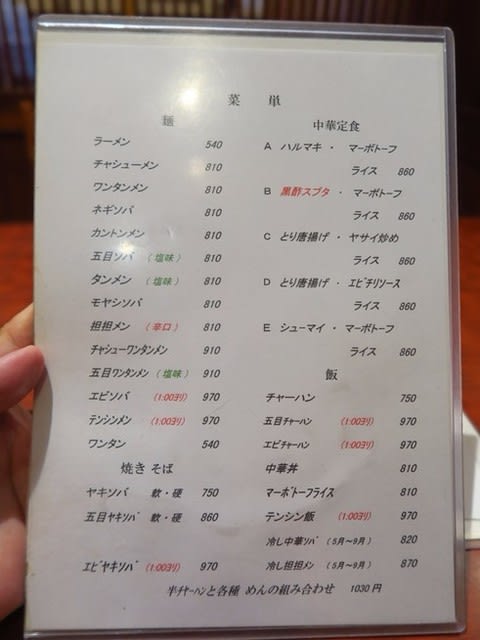 菜 単
麺
ラーメン 540
チャシューメン 810
ワンタンメン 810
ネギソバ 810
カントンメン 810
五目ソバ (塩味) 810
タンメン (塩味) 810
モヤシソバ 810
担担メン (辛口) 810
チャシューワンタンメン 910
五目ワンタンメン (塩味) 910
エビソバ (1:00ヨリ) 970
テンシンメン (1:00ヨリ) 970
ワンタン 540
焼きそば
ヤキソバ 軟・硬 750
五目ヤキソバ 軟・硬 860
エビヤキソバ (1:00ヨリ) 970
中華定食
A ハルマキ ・ マーボトーフ
ライス 860
B 黒酢スブタ ・ マーボトーフ
ライス 860
C とり唐揚げ ・ ヤサイ炒め
ライス 860
D とり唐揚げ ・ エビチリソース
ライス 860
E シューマイ ・ マーボトーフ
ライス 860
飯
チャーハン 750
五目チャーハン (1:00ヨリ) 970
エビチャーハン (1:00ヨリ) 970
中華丼 810
マーボトーフライス 810
テンシン飯 (1:00ヨリ) 970
冷し中華ソバ (5月～9月) 820
冷し担担メン (5月～9月) 870
半チャーハンと各種 めんの組み合わせ 1030円